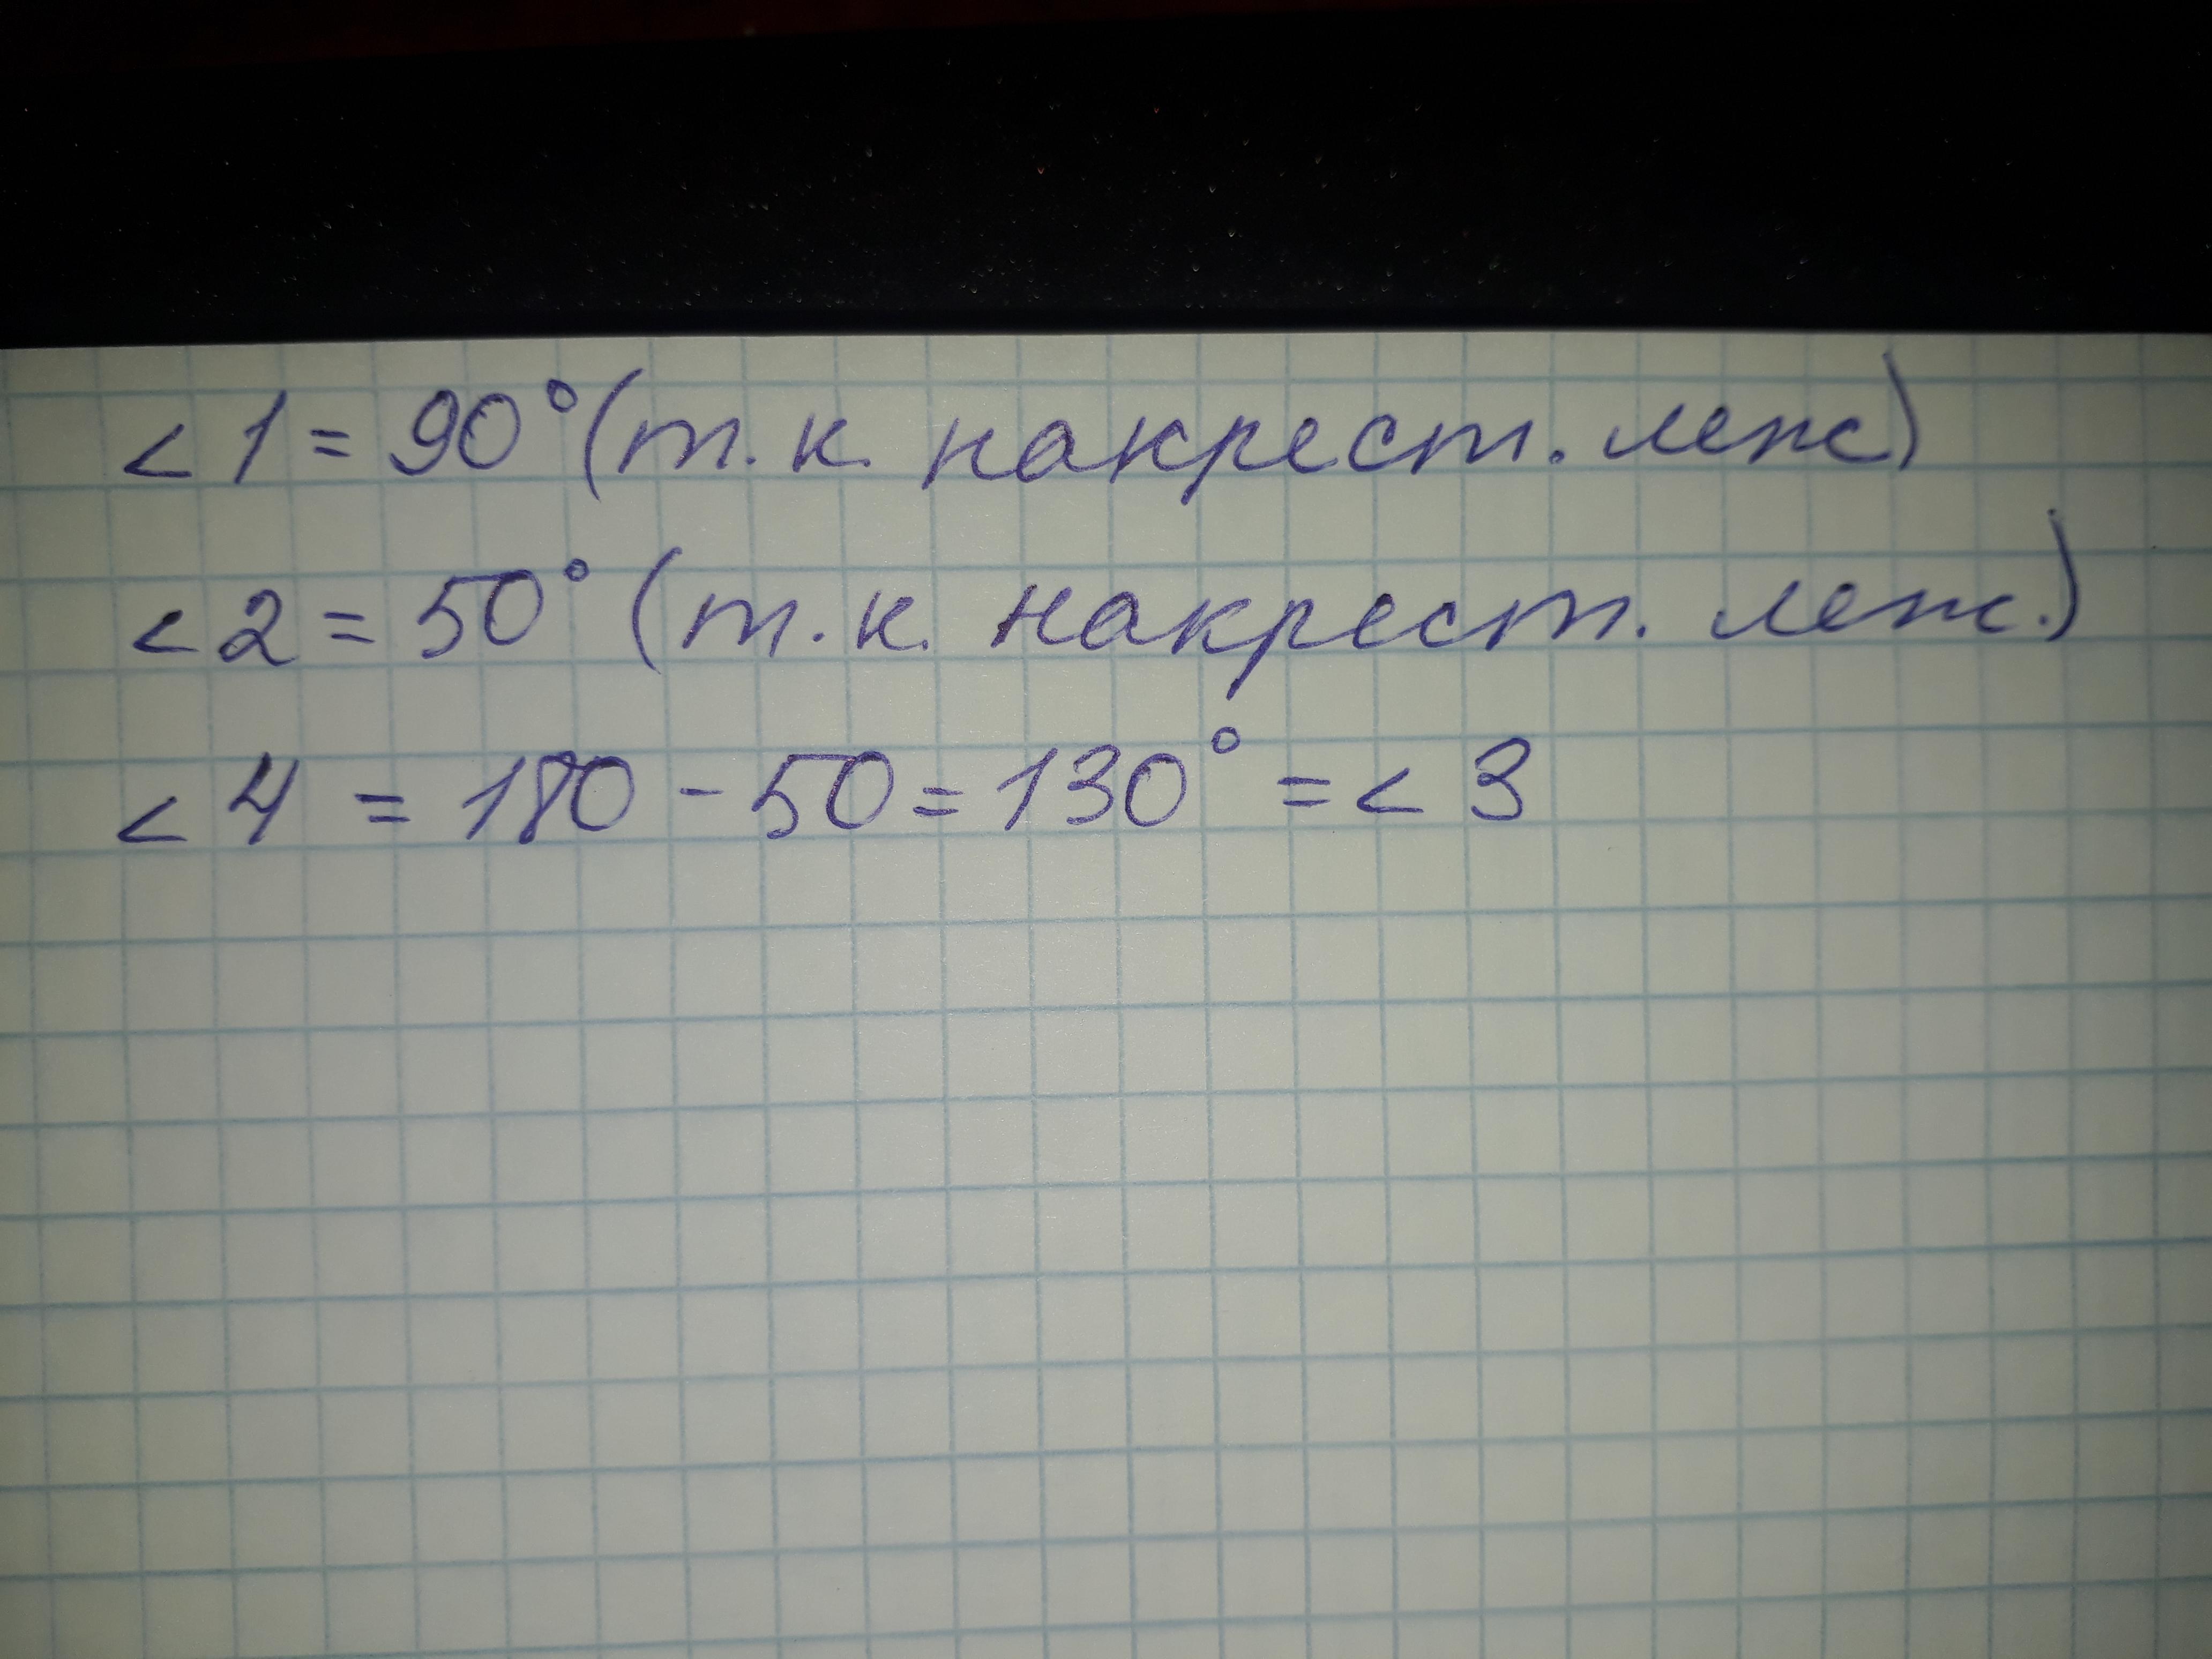 <1 = 90° (т.к. накрест. леж)
<2 = 50° (т.к. накрест. леж.)
<4 = 180 - 50 = 130° = <3